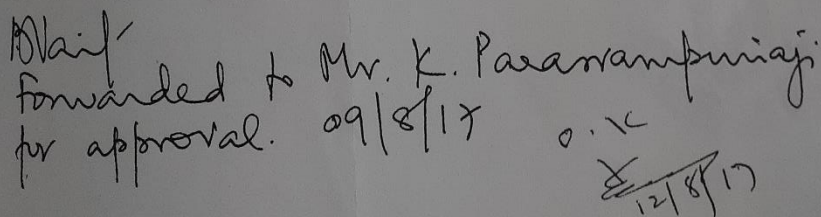 Forwarded to Mr. K. Parasrampuriaji
for approval. 09/8/17
O.K
12/8/17